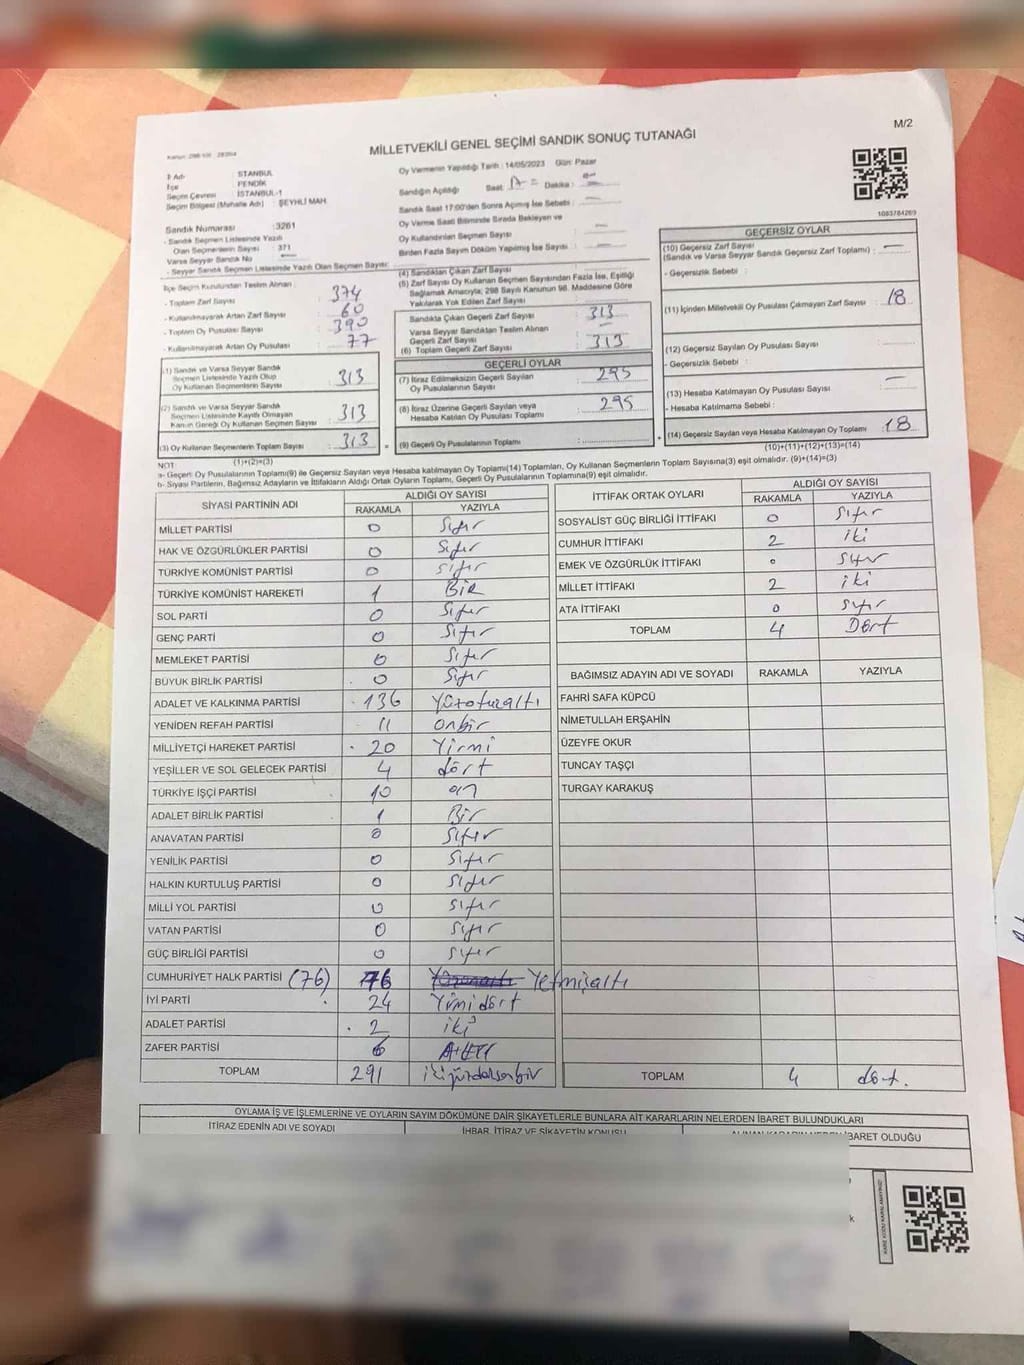 M/2
MİLLETVEKİLİ GENEL SEÇİMİ SANDIK SONUÇ TUTANAĞI
İl Adı : İSTANBUL
İlçe : PENDİK
Seçim Çevresi : İSTANBUL-1
Seçim Bölgesi (Mahalle Adı) : ŞEYHLİ MAH.
Sandık Numarası : 3261
- Sandık Seçmen Listesinde Yazılı
Olan Seçmenlerin Sayısı : 371
Varsa Seyyar Sandık No :
- Seyyar Sandık Seçmen Listesinde Yazılı Olan Seçmen Sayısı:
İlçe Seçim Kurulundan Teslim Alınan :
- Toplam Zarf Sayısı : 374
- Kullanılmayarak Artan Zarf Sayısı : 60
- Toplam Oy Pusulası Sayısı : 390
- Kullanılmayarak Artan Oy Pusulası : 77
(1) Sandık ve Varsa Seyyar Sandık
Seçmen Listesinde Yazılı Olup
Oy Kullanan Seçmenlerin Sayısı : 313
(2) Sandık ve Varsa Seyyar Sandık
Seçmen Listesinde Kayıtlı Olmayan
Kanun Gereği Oy Kullanan Seçmen Sayısı : 313
(3) Oy Kullanan Seçmenlerin Toplam Sayısı : 313
(1)+(2)=(3)
Oy Vermenin Yapıldığı Tarih : 14/05/2023 Gün: Pazar
Sandığın Açıldığı Saat : Dakika :
Sandık Saat 17:00'den Sonra Açılmış İse Sebebi :
Oy Verme Saati Bitiminde Sırada Bekleyen ve
Oy Kullandırılan Seçmen Sayısı :
Birden Fazla Sayım Döküm Yapılmış İse Sayısı :
(4) Sandıktan Çıkan Zarf Sayısı :
(5) Zarf Sayısı Oy Kullanan Seçmen Sayısından Fazla İse, Eşitliği
Sağlamak Amacıyla, 298 Sayılı Kanunun 98. Maddesine Göre
Yakılarak Yok Edilen Zarf Sayısı :
Sandıkta Çıkan Geçerli Zarf Sayısı : 313
Varsa Seyyar Sandıktan Teslim Alınan
Geçerli Zarf Sayısı :
(6) Toplam Geçerli Zarf Sayısı : 313
GEÇERLİ OYLAR
(7) İtiraz Edilmeksizin Geçerli Sayılan
Oy Pusulalarının Sayısı : 295
(8) İtiraz Üzerine Geçerli Sayılan veya
Hesaba Katılan Oy Pusulası Toplamı : 295
(9) Geçerli Oy Pusulalarının Toplamı :
1083784269
GEÇERSİZ OYLAR
(10) Geçersiz Zarf Sayısı
(Sandık ve Varsa Seyyar Sandık Geçersiz Zarf Toplamı) :
- Geçersizlik Sebebi :
(11) İçinden Milletvekili Oy Pusulası Çıkmayan Zarf Sayısı : 18
(12) Geçersiz Sayılan Oy Pusulası Sayısı :
- Geçersizlik Sebebi :
(13) Hesaba Katılmayan Oy Pusulası Sayısı :
- Hesaba Katılmama Sebebi :
(14) Geçersiz Sayılan veya Hesaba Katılmayan Oy Toplamı : 18
(10)+(11)+(12)+(13)=(14)
NOT
a- Geçerli Oy Pusulalarının Toplamı(9) ile Geçersiz Sayılan veya Hesaba katılmayan Oy Toplamı(14) Toplamları, Oy Kullanan Seçmenlerin Toplam Sayısına(3) eşit olmalıdır. (9)+(14)=(3)
b- Siyasi Partilerin, Bağımsız Adayların ve İttifakların Aldığı Ortak Oyların Toplamı, Geçerli Oy Pusulalarının Toplamına(9) eşit olmalıdır.
SİYASİ PARTİNİN ADI ALDIĞI OY SAYISI
RAKAMLA YAZIYLA
MİLLET PARTİSİ 0 Sıfır
HAK VE ÖZGÜRLÜKLER PARTİSİ 0 Sıfır
TÜRKİYE KOMÜNİST PARTİSİ 0 Sıfır
TÜRKİYE KOMÜNİST HAREKETİ 1 BİR
SOL PARTİ 0 Sıfır
GENÇ PARTİ 0 Sıfır
MEMLEKET PARTİSİ 0 Sıfır
BÜYÜK BİRLİK PARTİSİ 0 Sıfır
ADALET VE KALKINMA PARTİSİ 136 Yüzotuzaltı
YENİDEN REFAH PARTİSİ 11 onbir
MİLLİYETÇİ HAREKET PARTİSİ 20 Yirmi
YEŞİLLER VE SOL GELECEK PARTİSİ 4 dört
TÜRKİYE İŞÇİ PARTİSİ 10 on
ADALET BİRLİK PARTİSİ 1 Bir
ANAVATAN PARTİSİ 0 Sıfır
YENİLİK PARTİSİ 0 Sıfır
HALKIN KURTULUŞ PARTİSİ 0 Sıfır
MİLLİ YOL PARTİSİ 0 Sıfır
VATAN PARTİSİ 0 Sıfır
GÜÇ BİRLİĞİ PARTİSİ 0 Sıfır
CUMHURİYET HALK PARTİSİ (76) 76 Yetmişaltı
İYİ PARTİ 24 Yirmidört
ADALET PARTİSİ 2 iki
ZAFER PARTİSİ 6 ALTI
TOPLAM 291 ikiyüzdoksanbir
İTTİFAK ORTAK OYLARI ALDIĞI OY SAYISI
RAKAMLA YAZIYLA
SOSYALİST GÜÇ BİRLİĞİ İTTİFAKI 0 Sıfır
CUMHUR İTTİFAKI 2 iki
EMEK VE ÖZGÜRLÜK İTTİFAKI 0 Sıfır
MİLLET İTTİFAKI 2 iki
ATA İTTİFAKI 0 Sıfır
TOPLAM 4 Dört
BAĞIMSIZ ADAYIN ADI VE SOYADI RAKAMLA YAZIYLA
FAHRİ SAFA KÜPCÜ
NİMETULLAH ERŞAHİN
ÜZEYFE OKUR
TUNCAY TAŞÇI
TURGAY KARAKUŞ
TOPLAM 4 dört.
OYLAMA İŞ VE İŞLEMLERİNE VE OYLARIN SAYIM DÖKÜMÜNE DAİR ŞİKAYETLERLE BUNLARA AİT KARARLARIN NELERDEN İBARET BULUNDUKLARI
İTİRAZ EDENİN ADI VE SOYADI
İHBAR, İTİRAZ VE ŞİKAYETİN KONUSU
İBARET OLDUĞU